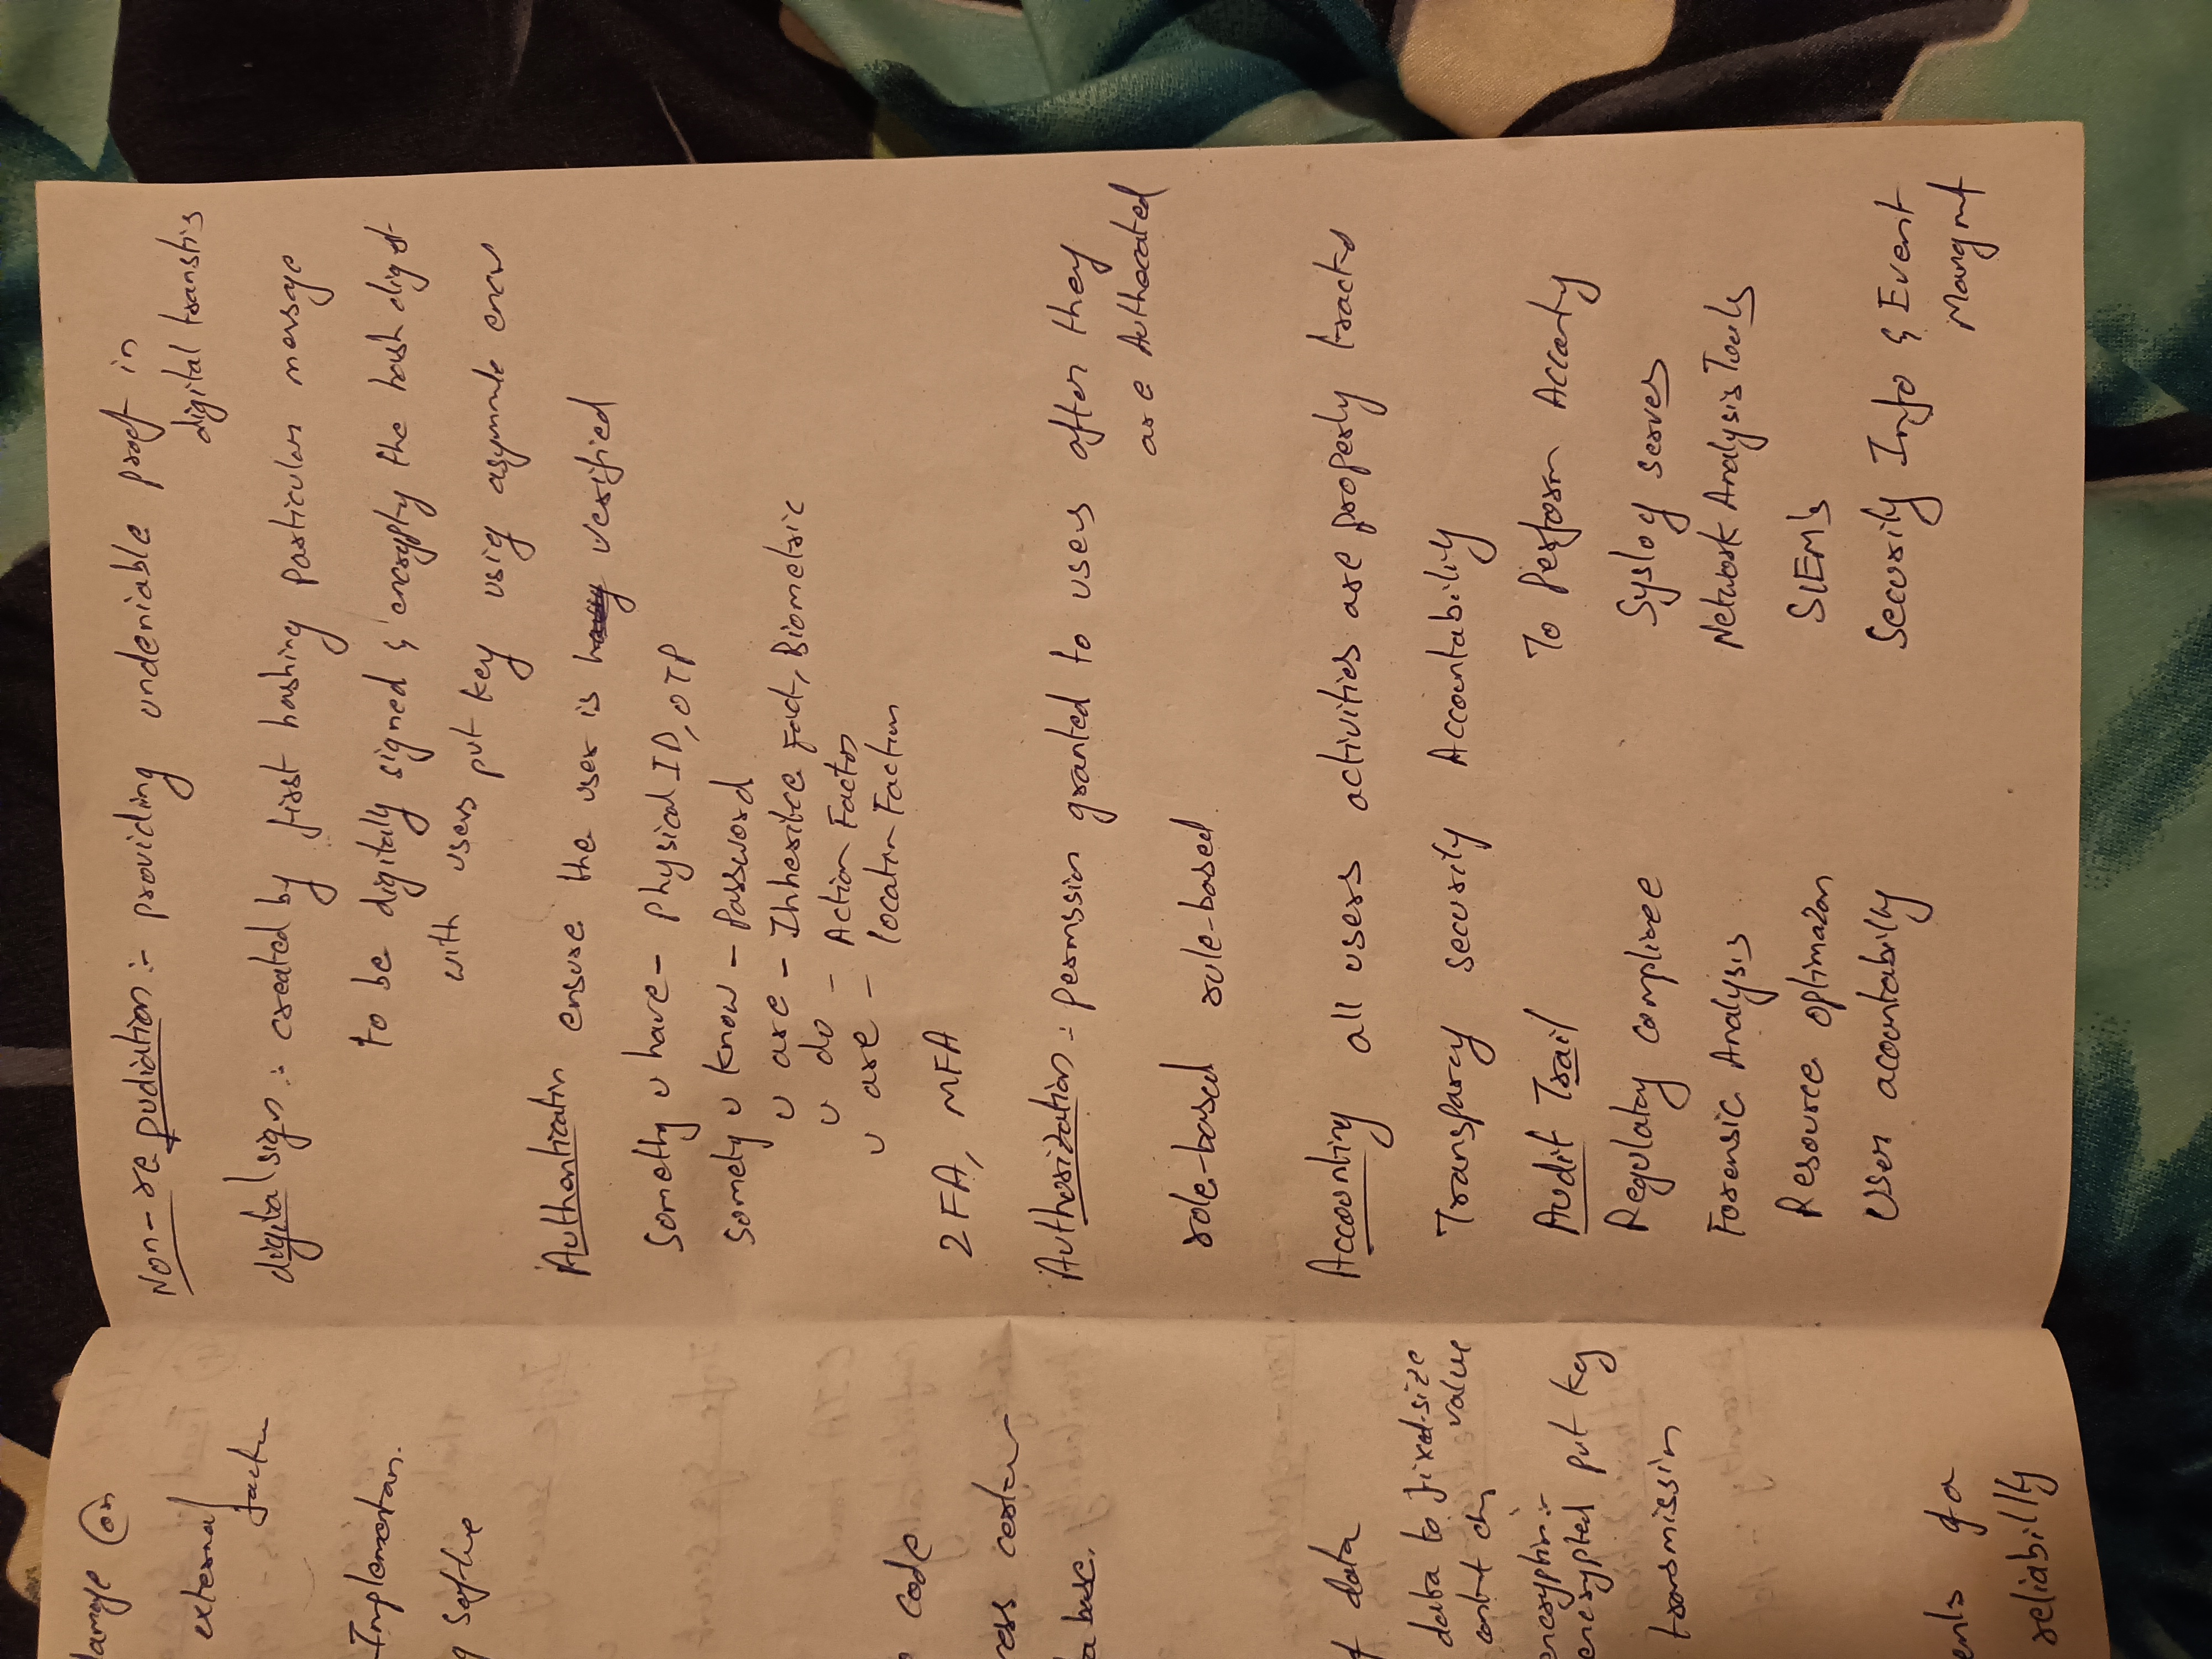 damage (or
external
factor
Implementan.
g softwe
code
ross certan
a base.
f data
data to fixed-size
value
encryptin:-
encrypted put key
transmission
ents of a
reliabillty
Non-repudiation :- providing undeniable proof in
digital transtis
digital sign :- created by first hashing particular message
to be digitally signed & encrypty the hash digest
with users put key usig asymmte encr
Authenticatin ensure the user is verified
Somethg u have - Physical ID, OTP
Sometg u know - Password
u are - Inheritce Fact, Biometric
u do - Action Factor
u are - locatin Faction
2FA, MFA
Authorization : permssion granted to users after they
are Authecated
role-based rule-based.
Accounting all users activities are properly trackd
Transparcy security Accountability
Audit Trail
Regulatoy complince
Forensic Analysis
Resource optimazon
User acountabilty
To Perform Accounty
Syslog serves
Network Analysis Tools
SIEM's
Security Info & Event
Mangmt